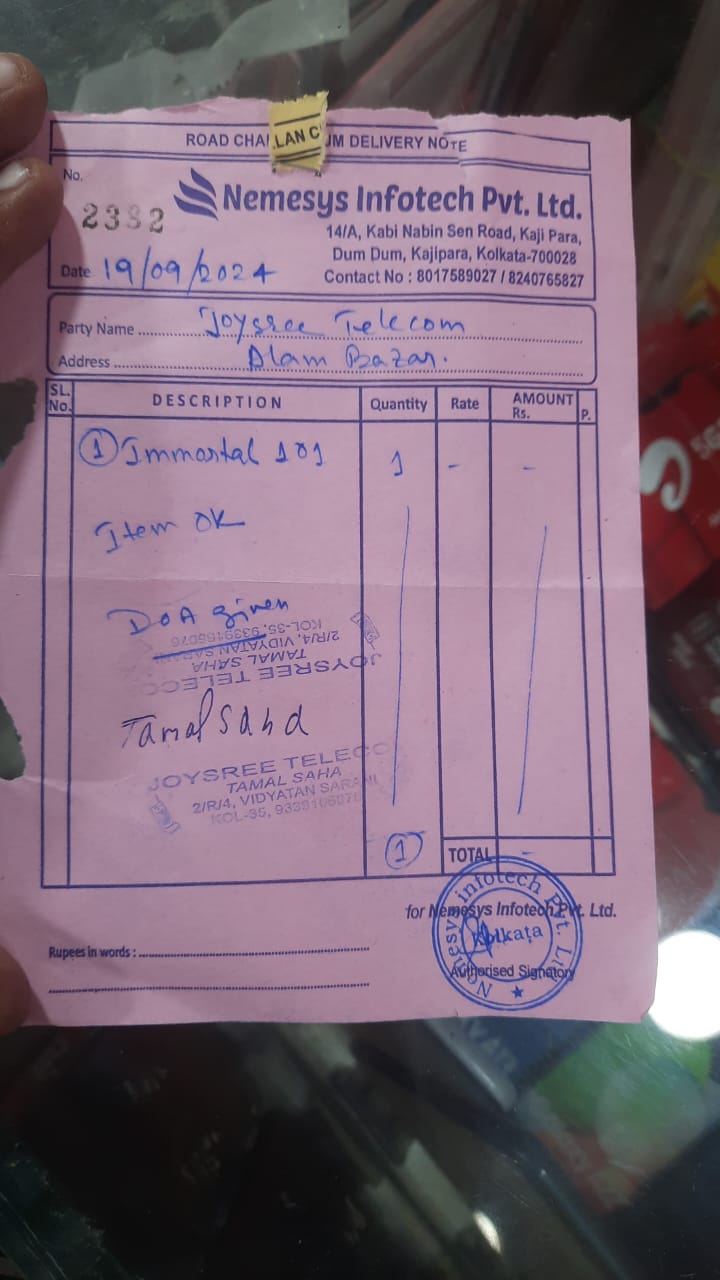 ROAD CHALLAN CUM DELIVERY NOTE
No. 2332
Nemesys Infotech Pvt. Ltd.
14/A, Kabi Nabin Sen Road, Kaji Para,
Dum Dum, Kajipara, Kolkata-700028
Contact No : 8017589027 / 8240765827
Date 19/09/2024
Party Name Joysree Telecom
Address Alam Bazar.
SL. No. DESCRIPTION Quantity Rate AMOUNT Rs. P.
① Immortal 101 1 - -
Item OK
DOA given
JOYSREE TELECO
TAMAL SAHA
2/R/4, VIDYATAN SARANI
KOL-35,
Tamal Saha
JOYSREE TELECO
TAMAL SAHA
2/R/4, VIDYATAN SARANI
KOL-35,
① TOTAL -
for Nemesys Infotech Pvt. Ltd.
Nemesys infotech Pvt. Ltd
Kolkata
Rupees in words :
Authorised Signatory